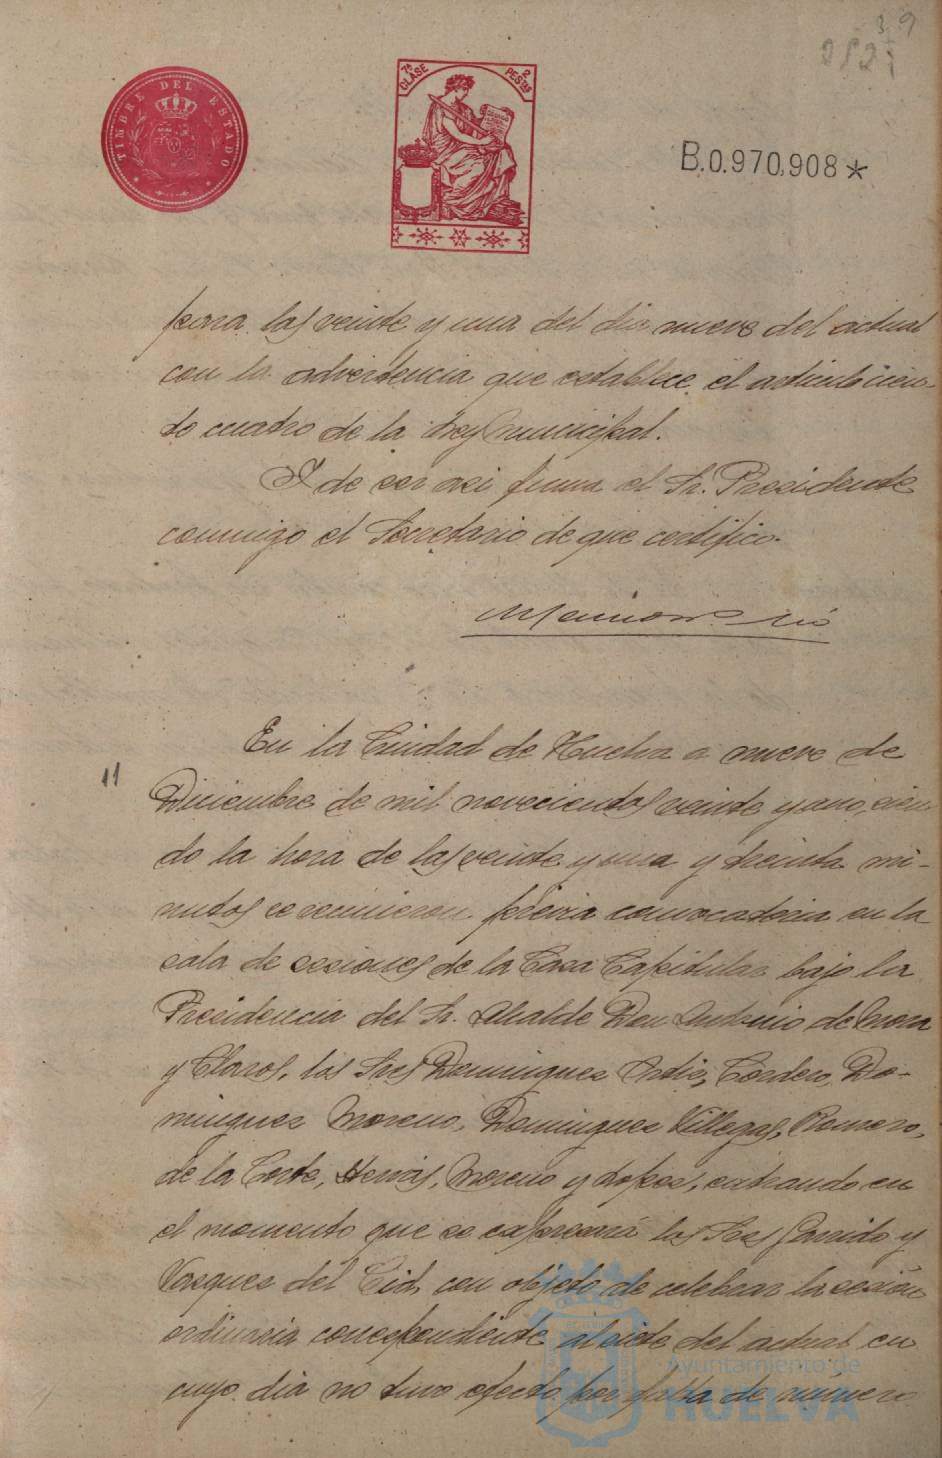 39
TIMBRE DEL ESTADO
7ª CLASE
2 PESTAS
B.0.970,908*
para las veinte y una del dia nueve del actual
con la advertencia que establece el articulo cien-
to cuatro de la Ley Municipal.
Y de ser asi firma el Sr. Presidente
conmigo el Secretario de que certifico.
En la Ciudad de Huelva a nueve de
11
Diciembre de mil novecientos veinte y uno, sien-
do la hora de las veinte y una y treinta mi-
nutos se reunieron previa convocatoria en la
sala de sesiones de la Casa Capitular bajo la
Presidencia del Sr. Alcalde Don Antonio de Mora
y Claros, los Sres Dominguez Ortiz, Cordero, Do-
minguez Moreno, Dominguez Villegas, Romero,
de la Corte, Hervas, Moreno y Lopez, entrando en
el momento que se expresará los Sres Garrido y
Vazquez del Cid, con objeto de celebrar la sesión
ordinaria correspondiente al siete del actual en
cuyo dia no tuvo efecto por falta de número
Ayuntamiento de
HUELVA